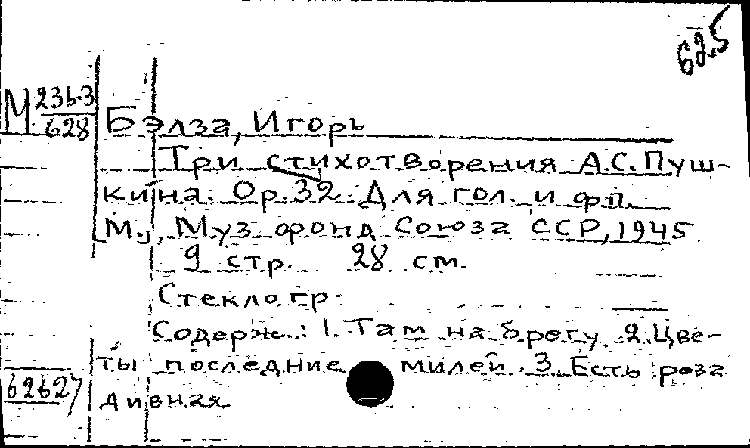 62.5
М 236.3
628
Бэлза, Игорь
Три стихотворения А.С.Пуш-
кина. Op.32. Для гол. и фп.
[М.], Муз фонд Союза ССР, 1945
9 стр. 28 см.
Стеклогр.
Содерж.: 1. Там на брегу. 2. Цве-
ты последние милей. 3. Есть роза
дивная
62627